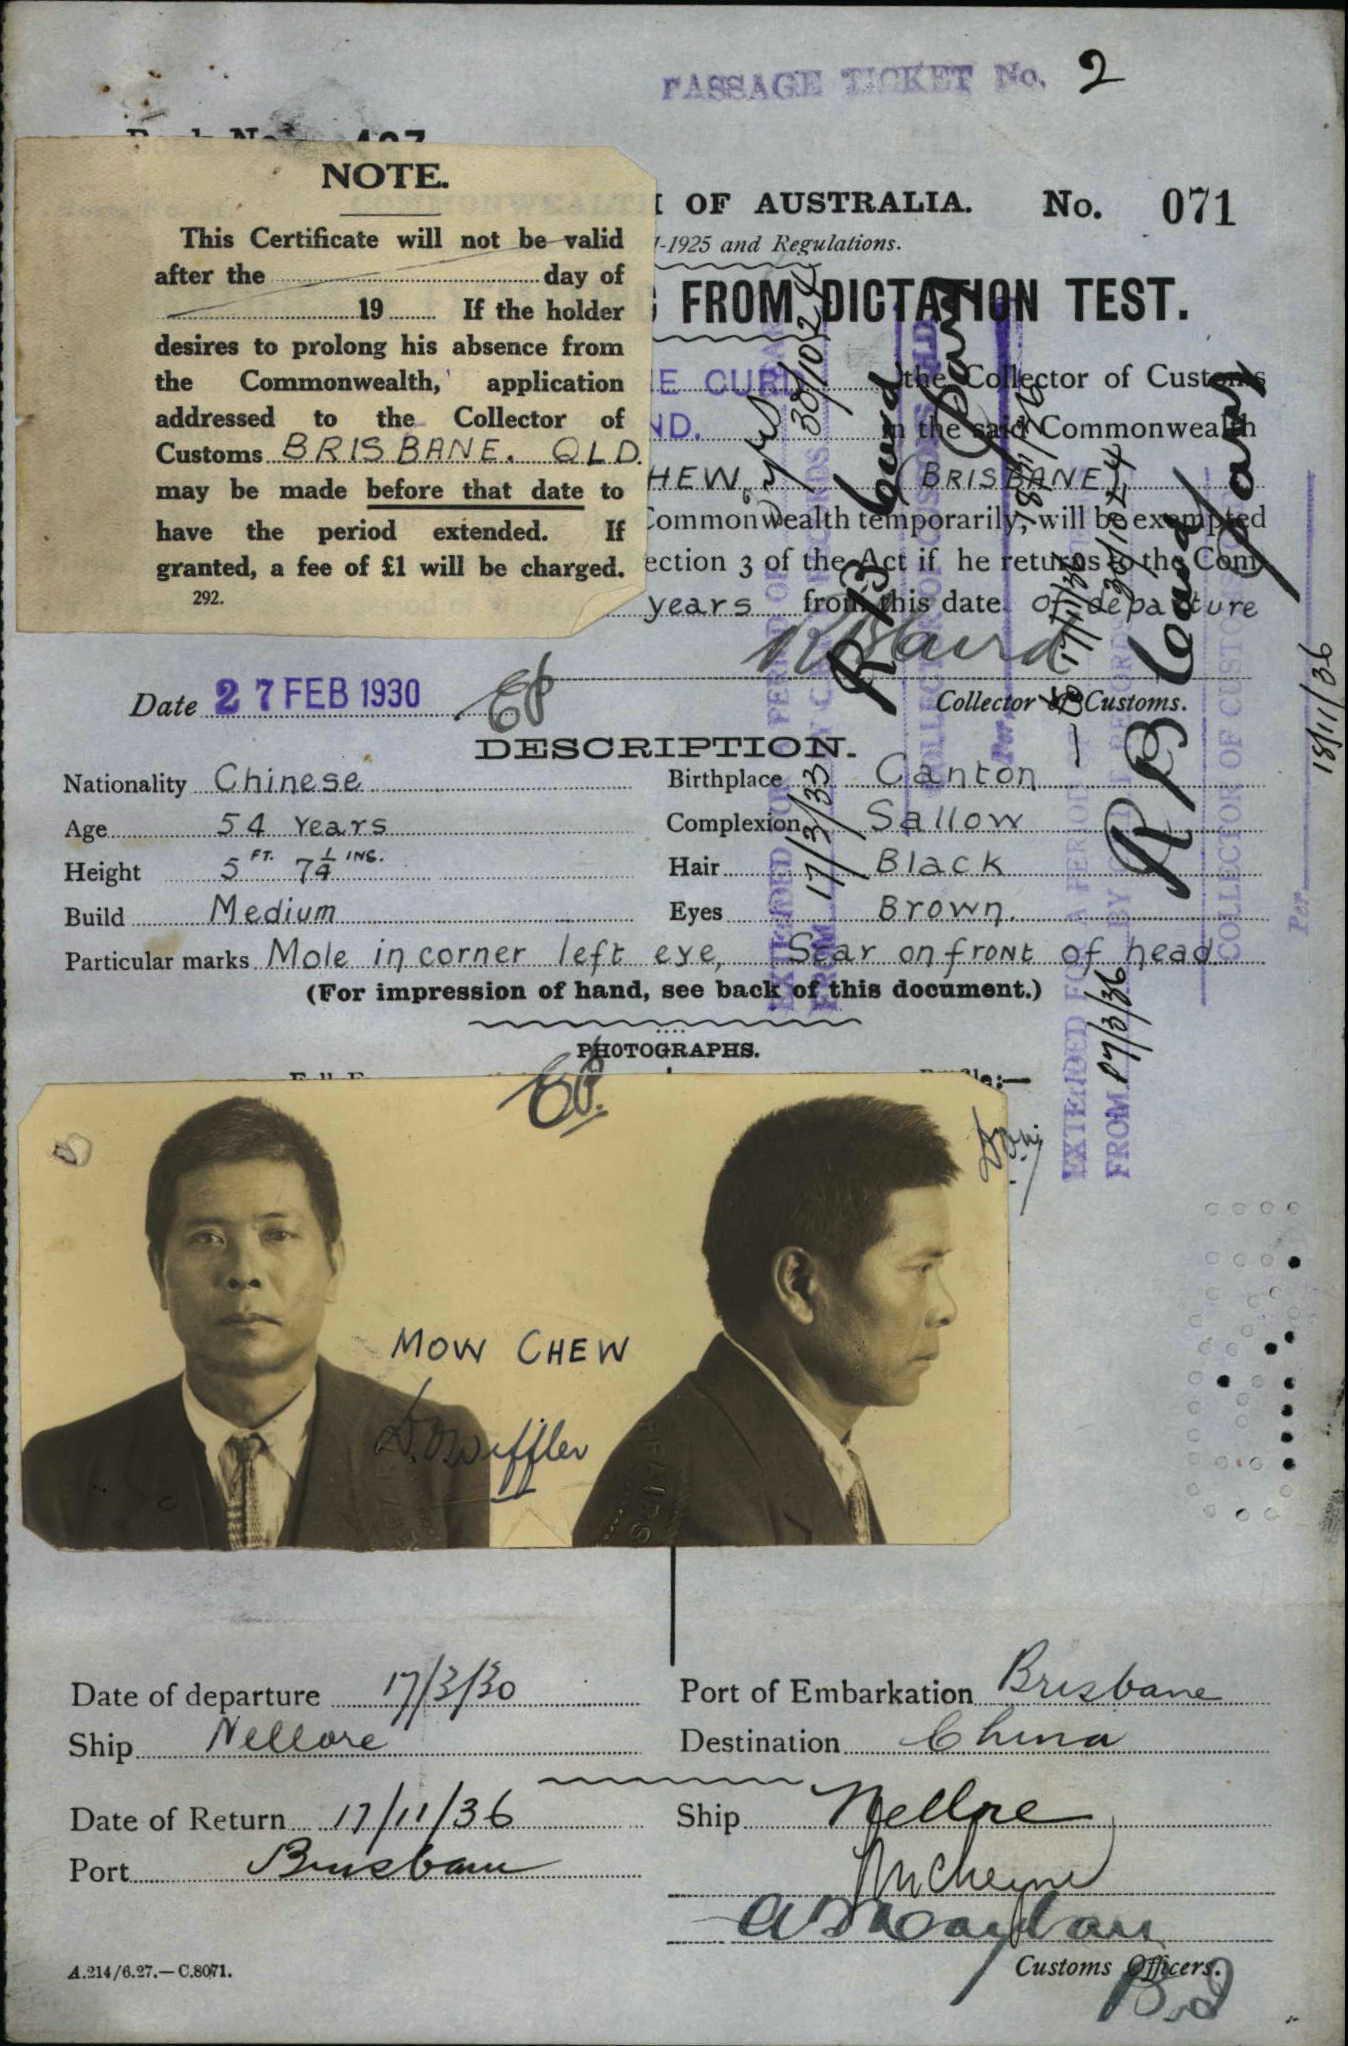 PASSAGE TICKET No. 2
NOTE.
This Certificate will not be valid
after the day of
19 If the holder
desires to prolong his absence from
the Commonwealth, application
addressed to the Collector of
Customs BRISBANE. QLD.
may be made before that date to
have the period extended. If
granted, a fee of £1 will be charged.
292.
OF AUSTRALIA. No. 071
-1925 and Regulations.
FROM DICTATION TEST.
the Collector of Customs
in the said Commonwealth
HEW. (BRISBANE)
Commonwealth temporarily, will be exempted
ection 3 of the Act if he returns to the Com
years from this date of departure
Date 27 FEB 1930
Collector of Customs.
DESCRIPTION.
Nationality Chinese
Birthplace Canton
Age 54 Years
Complexion Sallow
Height 5 FT. 7 1/4 INS.
Hair Black
Build Medium
Eyes Brown.
Particular marks Mole in corner left eye, Scar on front of head
(For impression of hand, see back of this document.)
PHOTOGRAPHS.
MOW CHEW
EXTENDED FOR A PERIOD OF
FROM 17/3/33
30/10/24
COLLECTOR OF CUSTOMS
Per
EXTENDED FOR A PERIOD
FROM 17/3/36
17/11/36
COLLECTOR OF CUSTOMS
Per
18/11/36
Date of departure 17/3/30
Port of Embarkation Brisbane
Ship Nellore
Destination China
Date of Return 17/11/36
Ship Nellore
Port Brisbane
Customs Officers.
A.214/6.27.—C.8071.